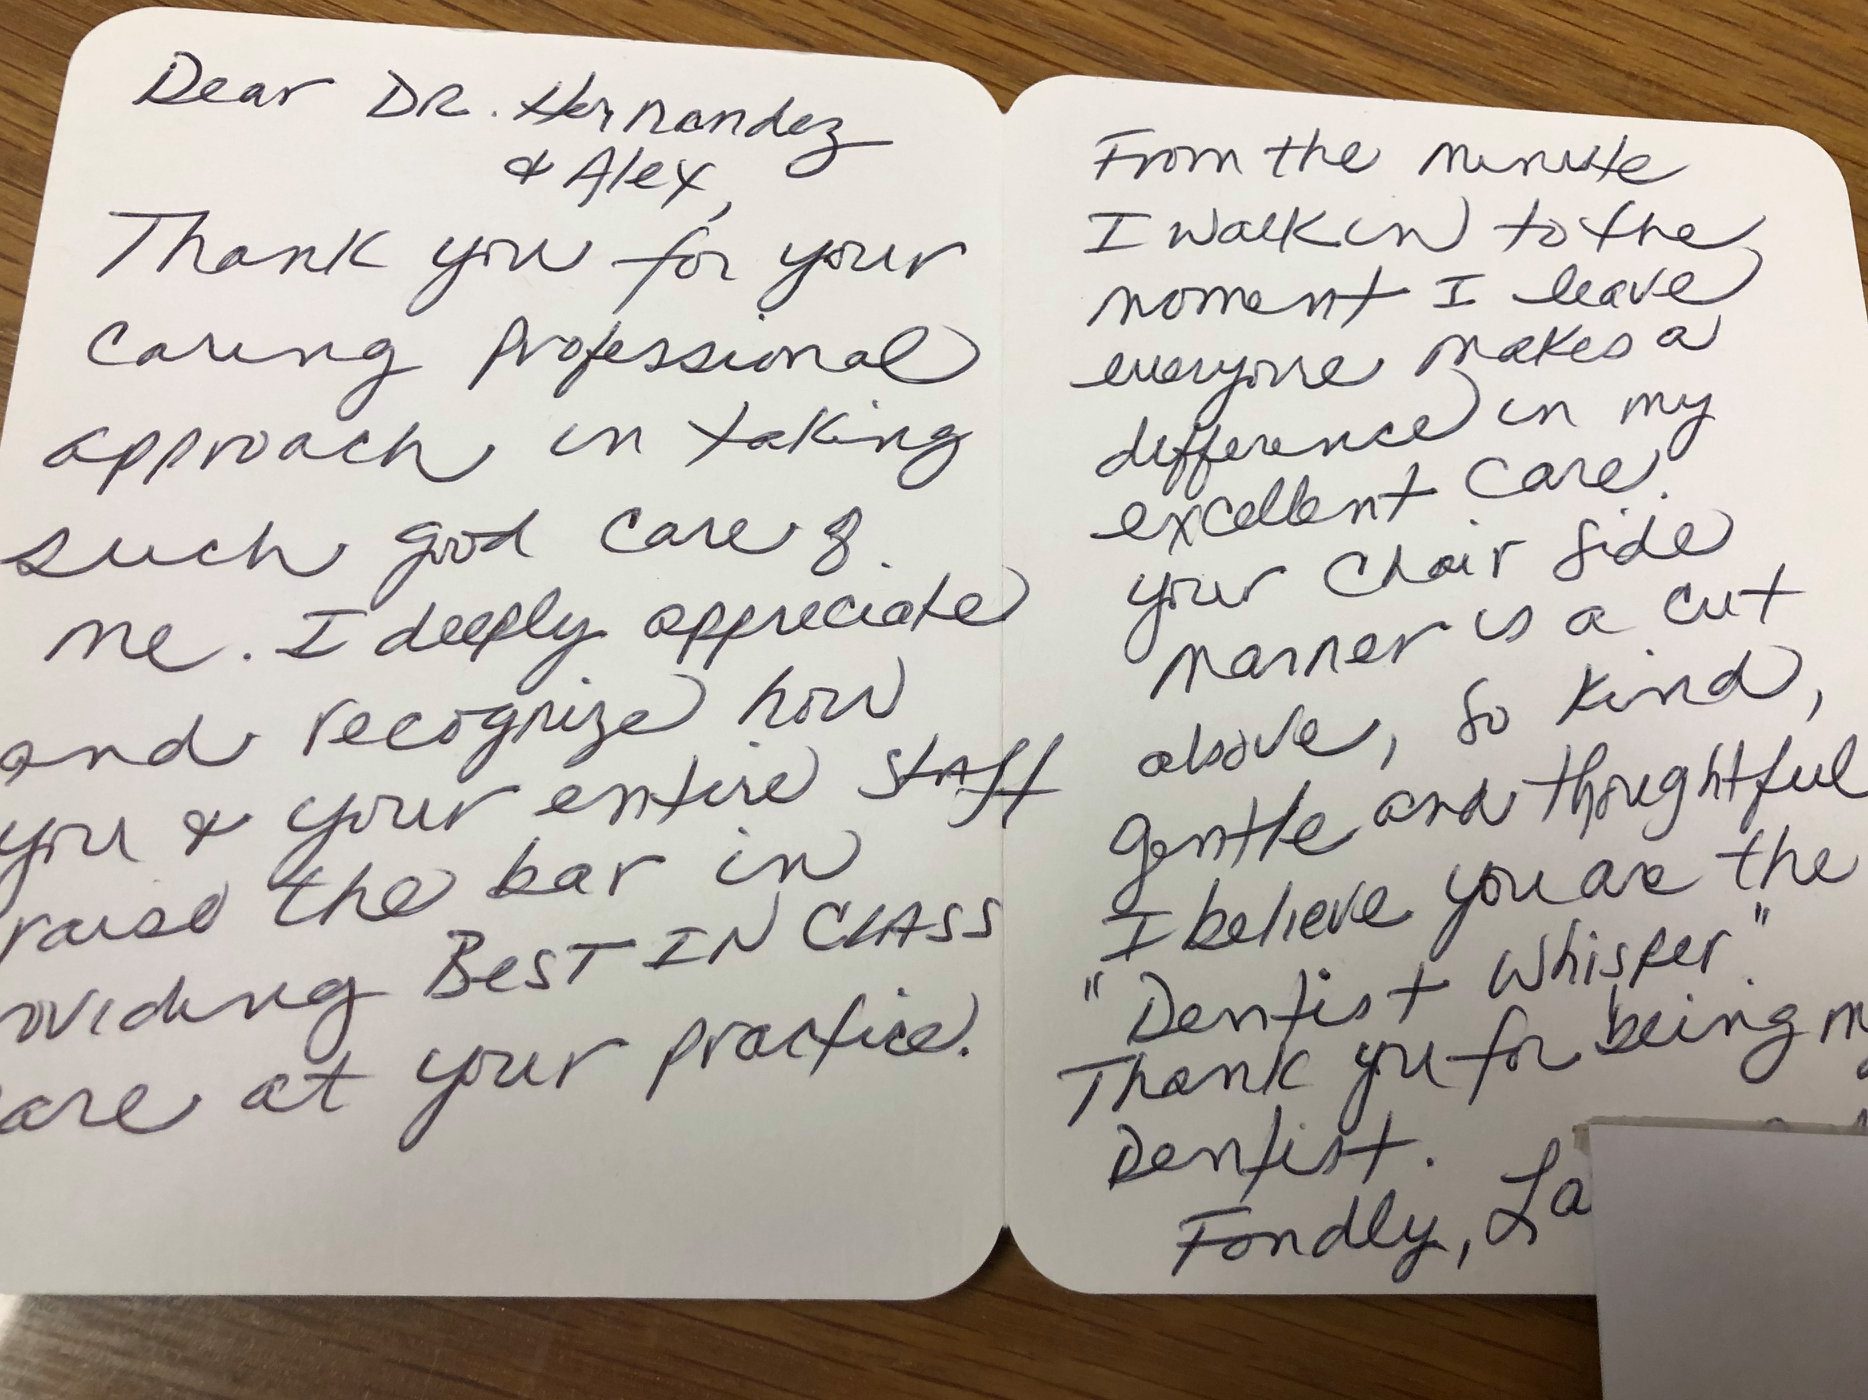 Dear DR. Hernandez
& Alex,
Thank you for your
caring professional
approach in taking
such good care of
me. I deeply appreciate
and recognize how
you & your entire staff
raise the bar in
oviding BEST IN CLASS
are at your practice.
From the minute
I walk in to the
moment I leave
everyone makes a
difference in my
excellent care.
your chair side
manner is a cut
above, so kind,
gentle and thoughtful
I believe you are the
"Dentist Whisper"
Thank you for being m
Dentist.
Fondly, La